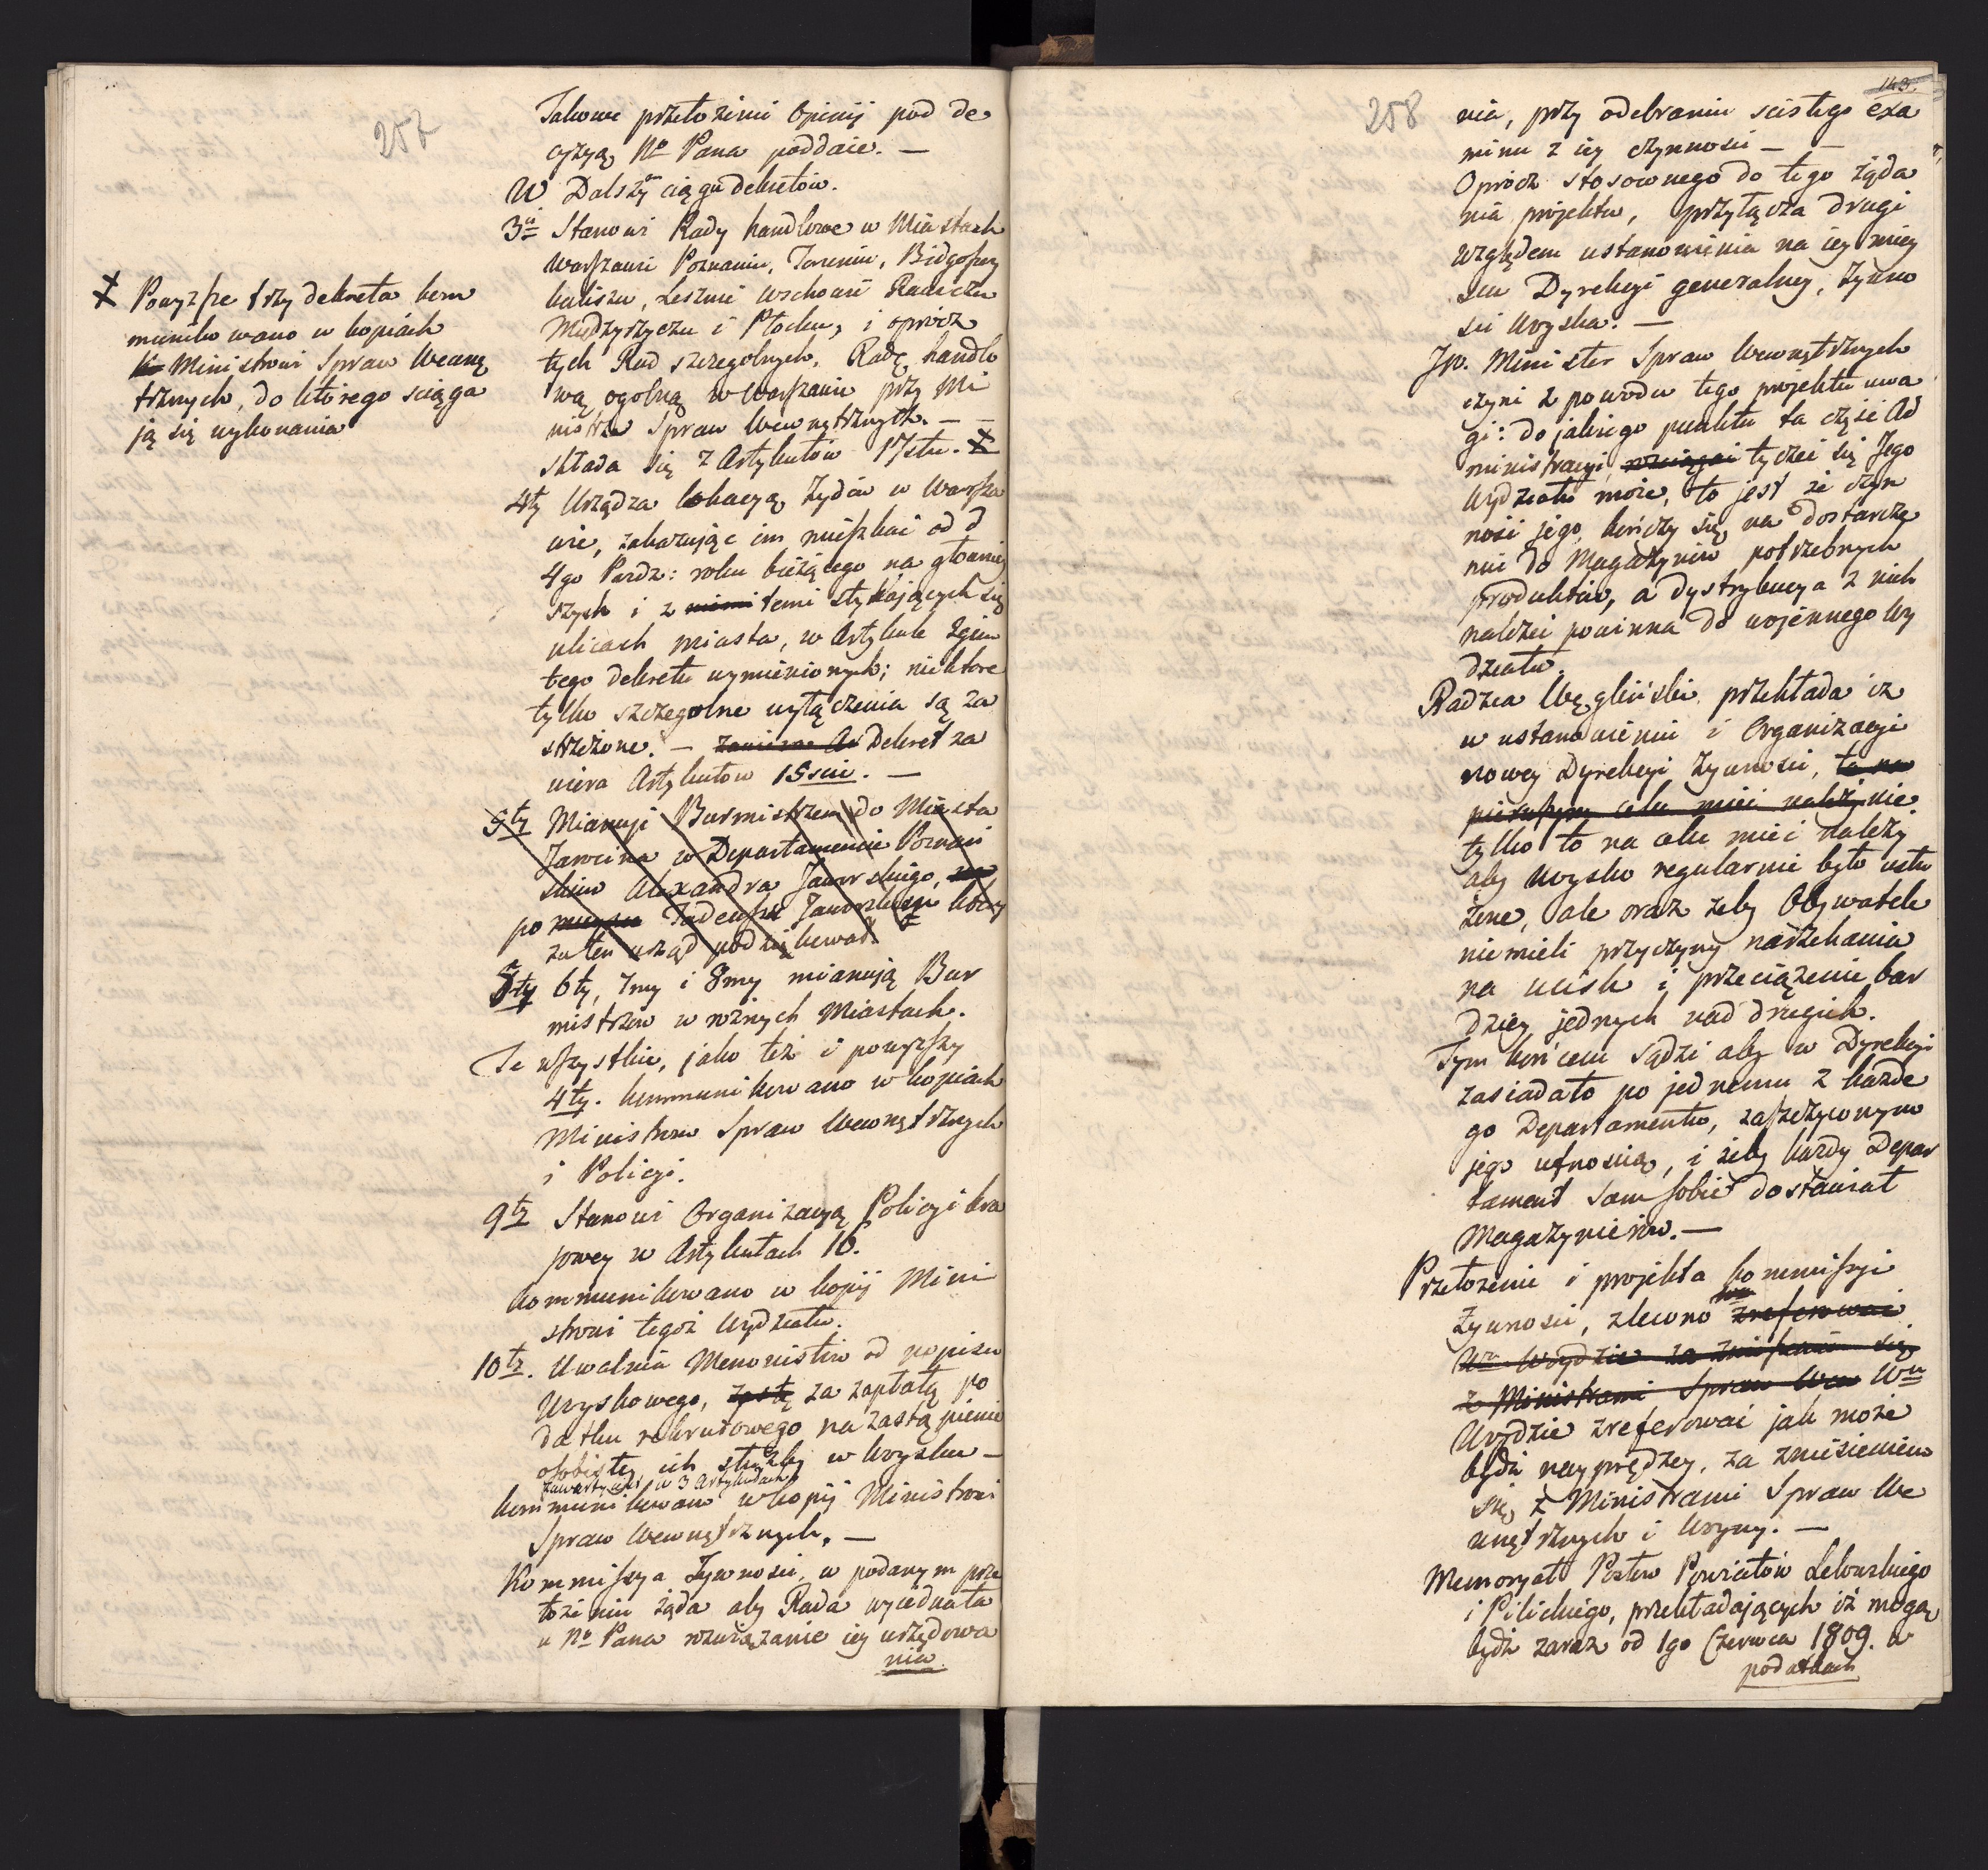 257
Takowe przełożenie Opinij pod de
cyzyą No Pana poddaie. —
W Dalszym ciągu dekretów.
3ci Stanowi Rady handlowe w Miastach
Warszawie Poznaniu, Toruniu, Bidgoszczy
Kaliszu, Lesznie Wschowie Rawiczu
Międzyrzyczu i Płocku, i oprócz
tych Rad szczegolnych, Radę handlo
wą ogolną w Warszawie przy Mi
nistrze Spraw Wewnętrznych. —
składa się z Artykułów 17stu. X
X Powyższe trzy dekreta kom
muniko wano w kopiach
Ministrowi Spraw Wewnę
trznych, do którego sciąga
ją się wykonania
4ty Urządza lokacyą Żydów w Warsza
wie, zakazując im mieszkać od d
4go Pazdz: roku bieżącego na głowniej
szych i z niemi temi stykających się
ulicach miasta, w Artykule 2gim
tego dekretu wymienionych; niektore
tylko szczegolne wyłączenia są za
strzeżone. — zawiera Ar Dekret za
wiera Artykułow 15scie. —
5ty Mianuje Burmistrzem do Miasta
Jarocina w Departamencie Poznań
skim Alexandra Jaworskiego, na
po mieyscu Tadeusza Jaworskiego który
za ten urząd podziękował.
5ty 6ty, 7my i 8my mianują Bur
mistrzow w rożnych Miastach.
Te wszystkie, jako też i powyższy
4ty. kommunikowano w kopiach
Ministrom Spraw Wewnętrznych
i Policyi.
9ty Stanowi Organizacyą Policyi kra
jowey w Artykułach 16.
kommunikowano w kopij Mini
strowi tegoż Wydziału.
10ty. Uwalnia Menonistów od popisu
Woyskowego, zastę za zapłatą po
datku rekrutowego na zastąpienie
osobistey ich służby w Woysku —
zawarty jest w 3 Artykułach
kommunikowano w kopij Ministrowi
Spraw Wewnętrznych. —
Kommissya Żywnosci, w podanym prze
łożeniu żąda aby Rada wyiednała
u No Pana rozwiązanie iey urzędowa
nia
258
143.
nia, przy odebraniu scisłego exa
minu z iey czynnosci —
Oprócz stosownego do tego żąda
nia projektu, przyłącza drugi
względem ustanowienia na iey miey
scu Dyrekcyi generalney, żywno
sci Woyska. —
JP. Minister Spraw Wewnętrznych
czyni z powodu tego projektu uwa
gi: do jakiego punktu ta część Ad
ministracyi rozciągać tyczeć się Jego
Wydziału może, to jest że czyn
ność jego, kończy się na dostarcze
niu do Magazynów potrzebnych
produktów, a dystrybucya z nich
należeć powinna do wojennego Wy
działu
Radzca Węgliński przekłada iż
w ustanowieniu i Organizacyi
nowey Dyrekcyi Żywnosci, to na
pierwszym celu mieć należy nie
tylko to na celu mieć należy
aby Woysko regularnie było usłu
żone, ale oraz żeby Obywatele
niemieli przyczyny narzekania
na ucisk i przeciążenie bar
dziey jednych nad drugich.
Tym końcem sądzi aby w Dyrekcyi
zasiadało po jednemu z każde
go Departamentu, zaszczyconym
jego ufnoscią, i żeby każdy Depar
tament sam sobie dostawiał
Magazynierów. —
Przełożenie i projekta kommissyi
Żywnosci, zlecono zreferować
Wu Woydzie za zniesieniem się
z Ministrami Spraw Wew Wu
Woydzie zreferować jak może
bydź nayprędzey, za zniesieniem
się z Ministrami Spraw We
wnętrznych i Woyny. —
Memoryał Posłów Powiatów Lelowskiego
i Pilickiego, przekładających iż mogą
bydź zaraz od 1go Czerwca 1809. w
podatkach